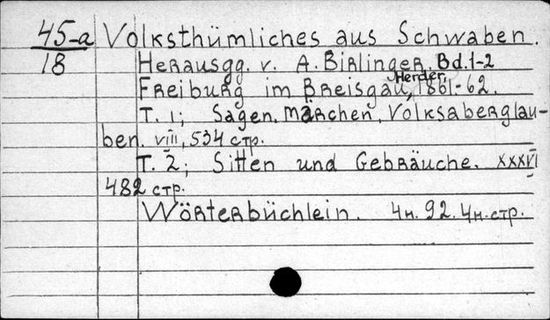 45-a Volksthümliches aus Schwaben.
18 Herausgg. v. A. Birlinger. Bd. 1-2
Freiburg im Breisgau, Herder, 1861-62.
T. 1; Sagen, Märchen, Volksaberglau-
ben. VIII, 534 стр.
T. 2; Sitten und Gebräuche. XXXVI
482 стр.
Wörterbüchlein. 4н. 92. 4н. стр.